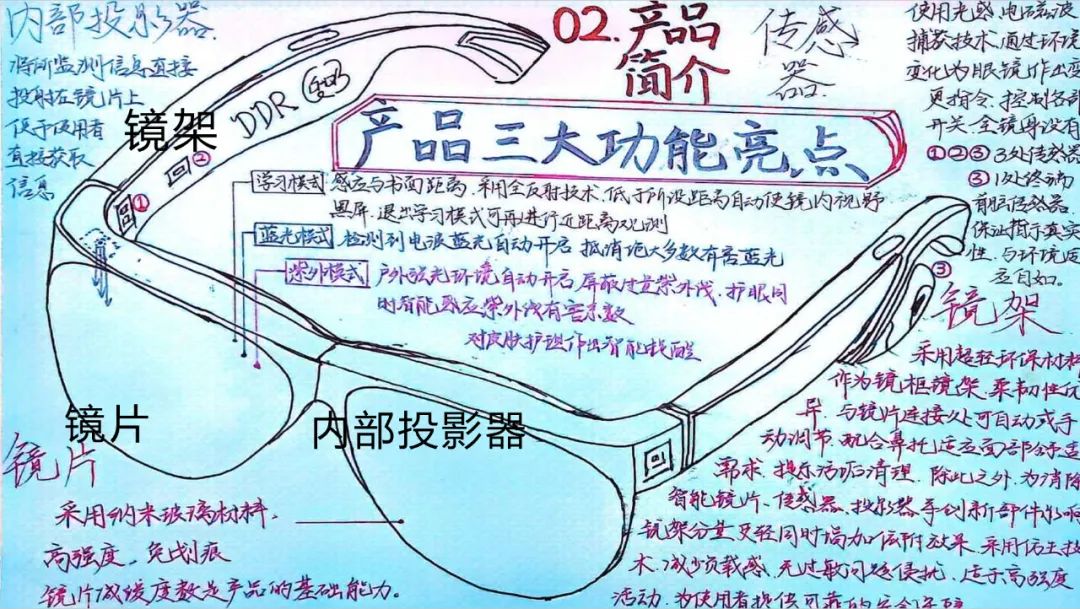 内部投影器.
将所监测信息直接
投射在镜片上
便于使用者
直接获取
信息
02.产品
简介
传感
器.
使用光感、电磁波
捕获技术.通过环境
变化为眼镜作出变
更指令.控制各部
开关.全镜身没有
①②③3处传感器
③1处终端
感应传感器.
保证指示真实
性.与环境适
应自如。
镜架
DDR
②
①
③
产品三大功能亮点
学习模式 感应与书面距离.采用全反射技术.低于所设距离自动使镜内视野
黑屏.退出学习模式可再进行近距离观测
蓝光模式 检测到电波蓝光自动开启 抵消绝大多数有害蓝光
紫外模式 户外强光环境自动开启.屏蔽过量紫外线.护眼同
时智能感应紫外线有害系数
对皮肤护理作出智能提醒
镜片
内部投影器
镜片
采用纳米玻璃材料.
高强度，免划痕
镜片减缓度数是产品的基础能力。
镜架
采用超轻环保材料
作为镜框镜架.柔韧性优
异.与镜片连接处可自动或手
动调节.配合鼻托适应面部舒适
需求.提示污垢清理.除此之外.为消除
智能镜片、传感器、投影器等创新部件的
镜架分量更轻同时增加依附效果.采用仿生技
术.减少负载感.无过敏问题侵扰.适于高强度
活动.为使用者提供可靠的安全保障